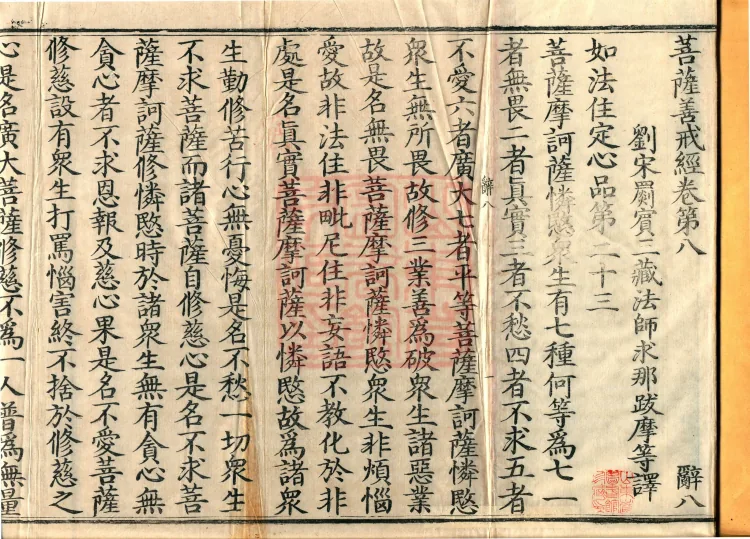 菩薩善戒經卷第八 辭八
劉宋罽賓三藏法師求那跋摩等譯
如法住定心品第二十三
菩薩摩訶薩憐愍眾生有七種何等為七一
者無畏二者真實三者不愁四者不求五者
不愛六者廣大七者平等菩薩摩訶薩憐愍
眾生無所畏故修三業善為破眾生諸惡業
故是名無畏菩薩摩訶薩憐愍眾生非煩惱
愛故非法住非毗尼住非妄語不教化於非
處是名真實菩薩摩訶薩以憐愍故為諸眾
生勤修苦行心無憂悔是名不愁一切眾生
不求菩薩而諸菩薩自修慈心是名不求菩
薩摩訶薩修憐愍時於諸眾生無有貪心無
貪心者不求恩報及慈心果是名不愛菩薩
修慈設有眾生打罵惱害終不捨於修慈之
心是名廣大菩薩修慈不為一人普為無量
辭八